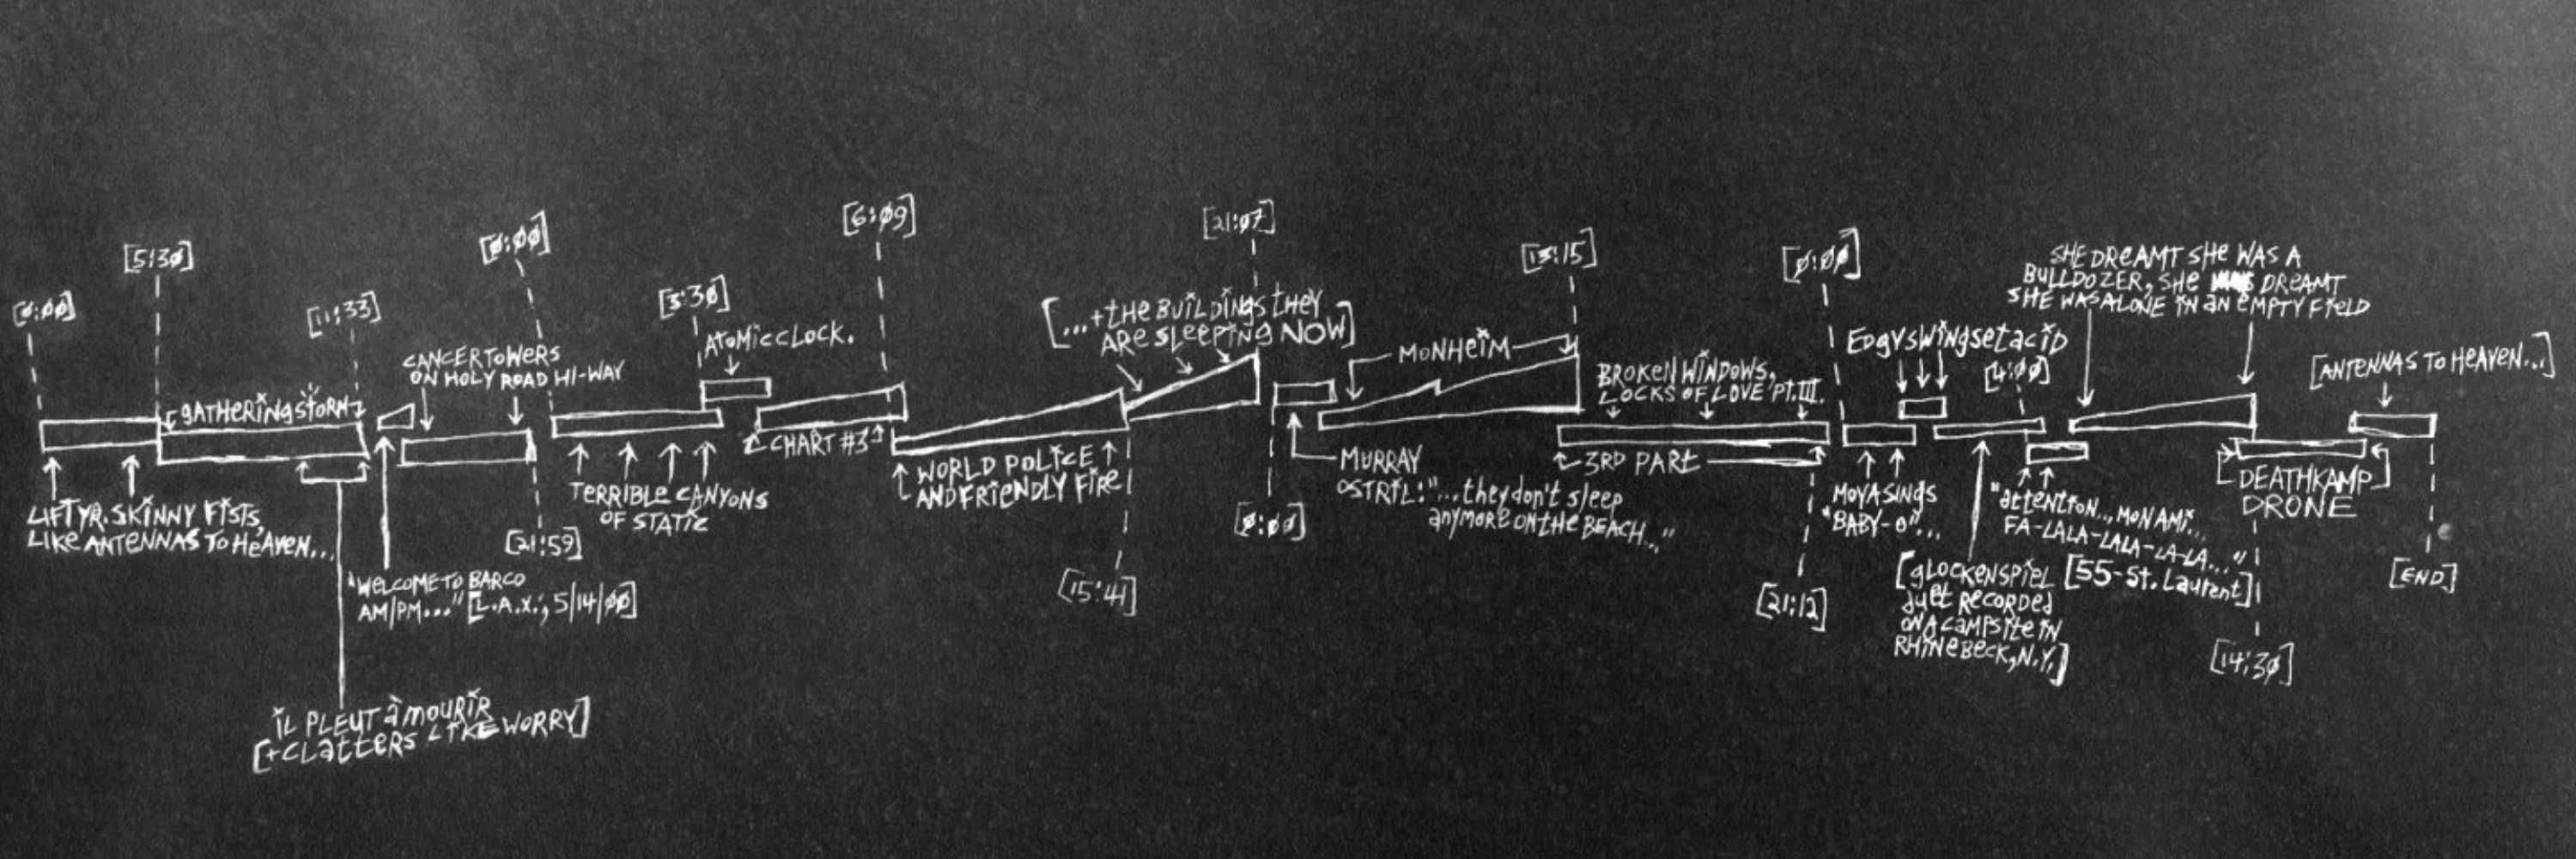 [0:00]
[5:30]
[11:33]
[0:00]
[3:30]
[6:09]
[21:07]
[13:15]
[0:00]
LIFT YR. SKINNY FISTS,
LIKE ANTENNAS TO HEAVEN...
GATHERING STORM
IL PLEUT À MOURIR
[+CLATTERS LIKE WORRY]
"WELCOME TO BARCO
AM/PM..." [L.A.X.; 5/14/00]
CANCER TOWERS
ON HOLY ROAD HI-WAY
[21:59]
TERRIBLE CANYONS
OF STATIC
ATOMIC CLOCK.
CHART #3
WORLD POLICE
AND FRIENDLY FIRE
[15:41]
[...+THE BUILDINGS THEY
ARE SLEEPING NOW]
[0:00]
MURRAY
OSTRIL: "...they don't sleep
anymore on the BEACH..."
MONHEIM
BROKEN WINDOWS,
LOCKS OF LOVE PT. III.
3RD PART
[21:12]
MOYA SINGS
"BABY-O"...
EDGYSWINGSETACID
[4:00]
[GLOCKENSPIEL
DUET RECORDED
ON A CAMPSITE IN
RHINEBECK, N.Y.]
"attention...MON AMI...
FA-LALA-LALA-LA-LA..."
[55-St. Laurent]
SHE DREAMT SHE WAS A
BULLDOZER, SHE DREAMT
SHE WAS ALONE IN AN EMPTY FIELD
DEATHKAMP
DRONE
[14:30]
[ANTENNAS TO HEAVEN...]
[END]